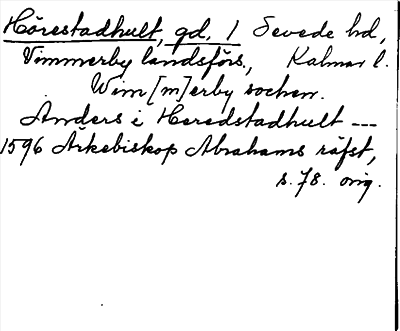 Hörestadhult, gd. 1 Sevede hd,
Vimmerby landsförs., Kalmar l.
Wim[m]erby sochen.
Anders i Heredstadhult ---
1596 Ärkebiskop Abrahams räfst,
s. 78. orig.